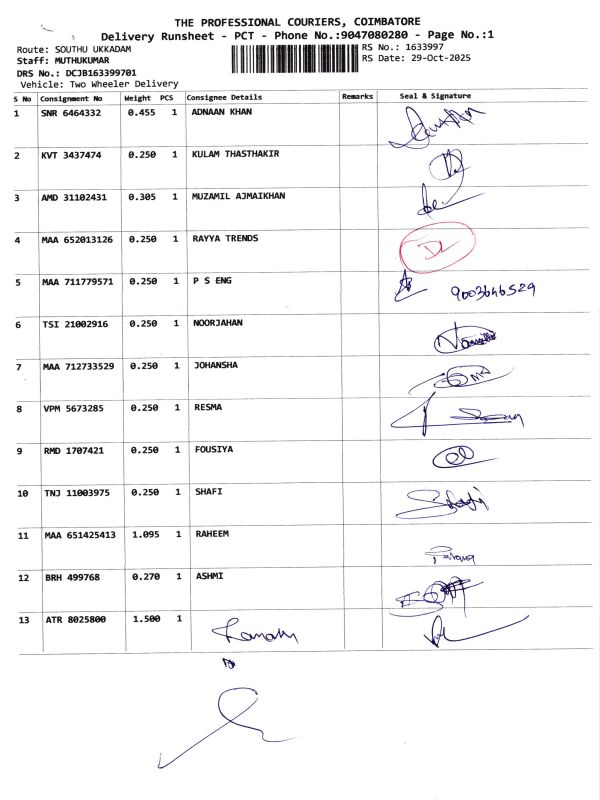 THE PROFESSIONAL COURIERS, COIMBATORE
Delivery Runsheet - PCT - Phone No.:9047080280 - Page No.:1
Route: SOUTHU UKKADAM RS No.: 1633997
Staff: MUTHUKUMAR RS Date: 29-Oct-2025
DRS No.: DCJB163399701
Vehicle: Two Wheeler Delivery
S No Consignment No Weight PCS Consignee Details Remarks Seal & Signature
1 SNR 6464332 0.455 1 ADNAAN KHAN
2 KVT 3437474 0.250 1 KULAM THASTHAKIR
3 AMD 31102431 0.305 1 MUZAMIL AJMAIKHAN
4 MAA 652013126 0.250 1 RAYYA TRENDS
5 MAA 711779571 0.250 1 P S ENG 9003646529
6 TSI 21002916 0.250 1 NOORJAHAN
7 MAA 712733529 0.250 1 JOHANSHA
8 VPM 5673285 0.250 1 RESMA
9 RMD 1707421 0.250 1 FOUSIYA
10 TNJ 11003975 0.250 1 SHAFI
11 MAA 651425413 1.095 1 RAHEEM
12 BRH 499768 0.270 1 ASHMI
13 ATR 8025800 1.500 1